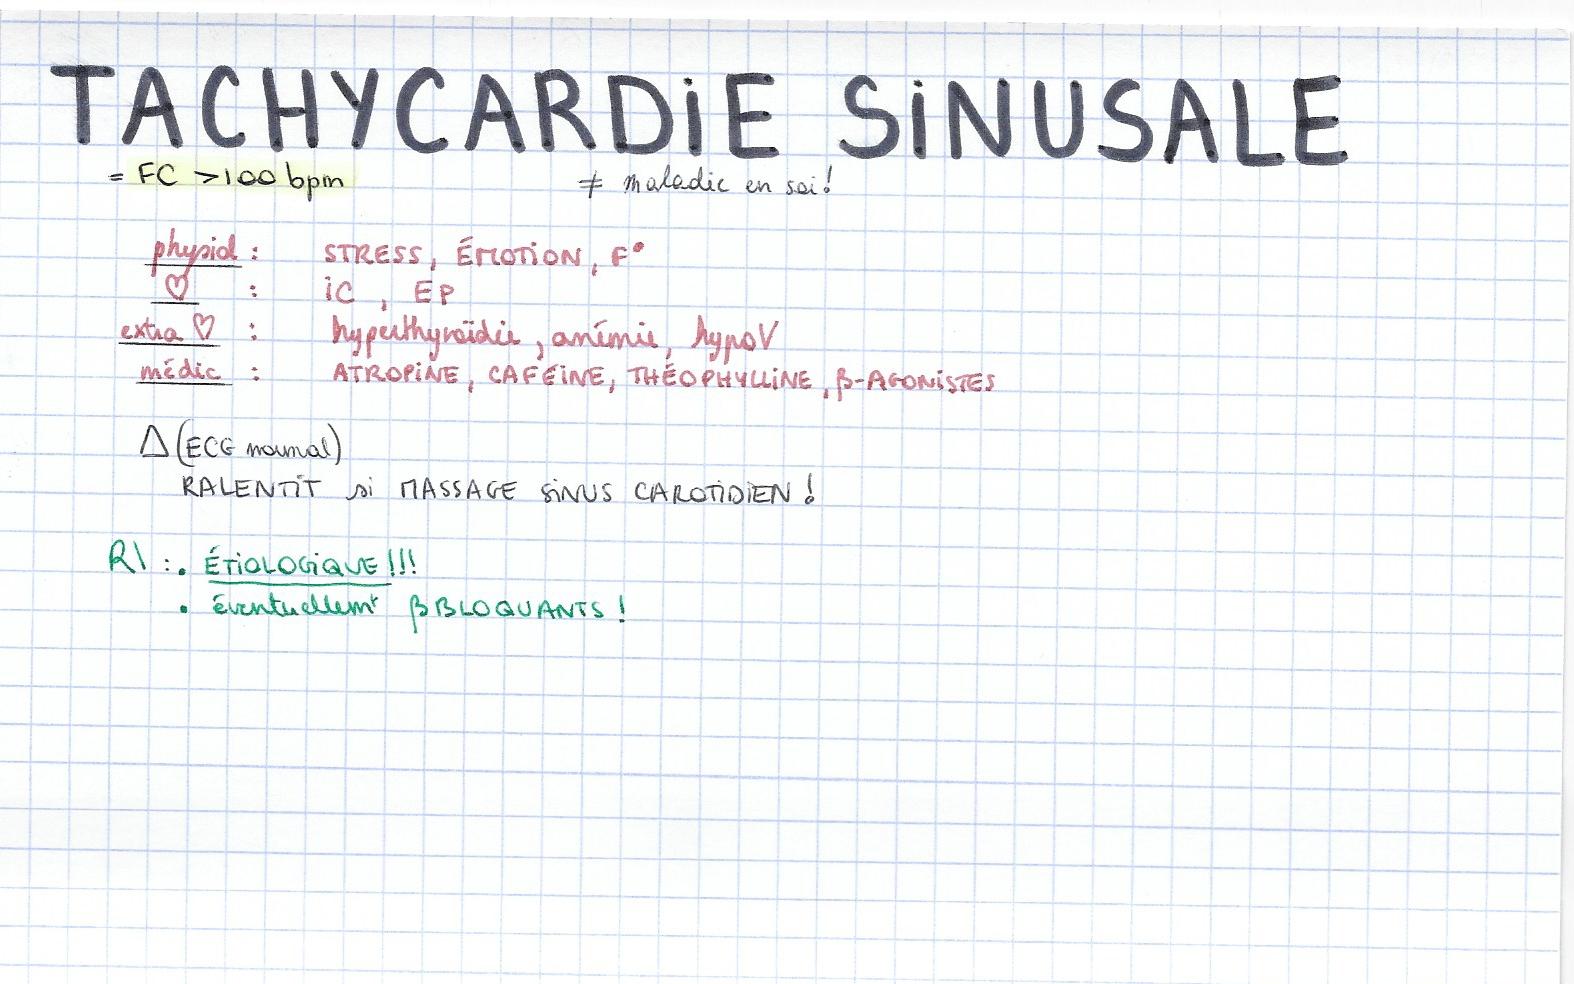 TACHYCARDiE SiNUSALE
= FC >100 bpm ≠ maladie en soi!
physiol : STRESS, ÉMOTiON, F°
♡ : iC, EP
extra ♡ : hyperthyroïdie, anémie, hypoV
médic : ATROPiNE, CAFÉiNE, THÉOPHYLLiNE, β-AGONiSTES
Δ (ECG normal)
RALENTiT si MASSAGE SiNUS CAROTiDiEN !
R\ : • ÉTiOLOGiQUE!!!
• éventuellemt βBLOQUANTS !